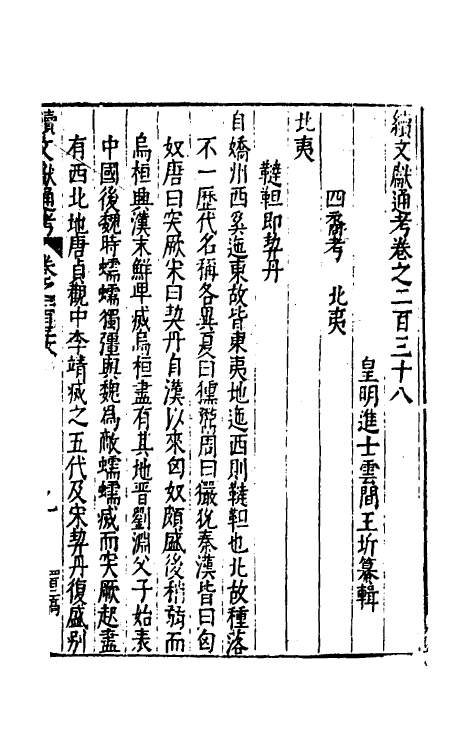 續文獻通考卷之二百三十八
皇明進士雲間王圻纂輯
四裔考 北夷
北夷
韃靼即契丹
自嬌州西奚迤東故皆東夷地迤西則韃靼也北故種落
不一歷代名稱各異夏曰獯鬻周曰儼狁秦漢皆曰匈
奴唐曰突厥宋曰契丹自漢以來匈奴頗盛後稍弱而
烏桓興漢末鮮卑烕烏桓盡有其地晉劉淵父子始表
中國後魏時蠕蠕獨彊與魏為敵蠕蠕烕而突厥起盡
有西北地唐貞觀中李靖烕之五代及宋契丹復盛别
續文獻通考 卷之二百三十八